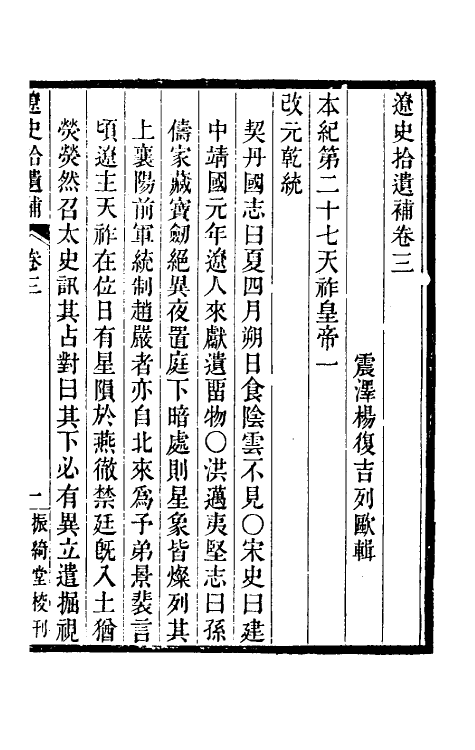 遼史拾遺補卷三
震澤楊復吉列歐輯
本紀第二十七天祚皇帝一
改元乾統
契丹國志曰夏四月朔日食陰雲不見〇宋史曰建
中靖國元年遼人來獻遺畱物〇洪邁夷堅志曰孫
儔家藏寶劒絕異夜置庭下暗處則星象皆燦列其
上襄陽前軍統制趙嚴者亦自北來爲子弟景裴言
頃遼主天祚在位日有星隕於燕徹禁廷旣入土猶
熒熒然召太史訊其占對曰其下必有異立遣掘視
遼史拾遺補 卷三 一 振綺堂校刊